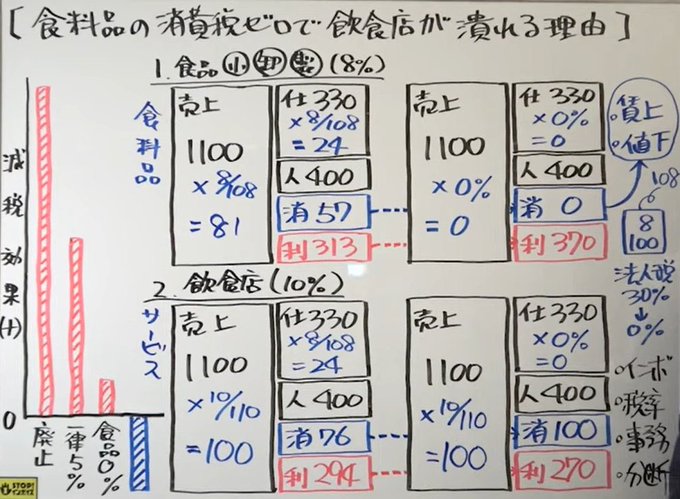 [食料品の消費税ゼロで飲食店が潰れる理由]
1. 食品 小 卸 製 (8%)
食料品
売上
1100
×8/108
=81
仕330
×8/108
=24
人400
消57
利313
売上
1100
×0%
=0
仕330
×0%
=0
人400
消0
利370
・賃上
・値下
108
8
100
法人税
30%
↓
0%
2. 飲食店(10%)
サービス
売上
1100
×10/110
=100
仕330
×8/108
=24
人400
消76
利294
売上
1100
×10/110
=100
仕330
×0%
=0
人400
消100
利270
・インボ
・税率
・事務
・分断
減税効果(+)
0
廃止
一律5%
食品0%
STOP!
インボイス